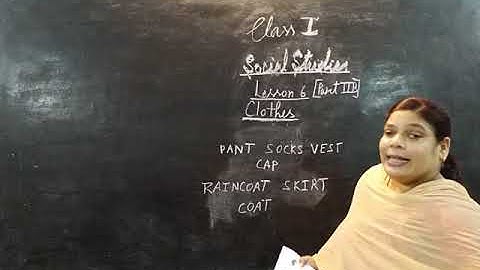 Class I
Social Studies
Lesson 6 [Part III]
Clothes
PANT SOCKS VEST
CAP
RAINCOAT SKIRT
COAT